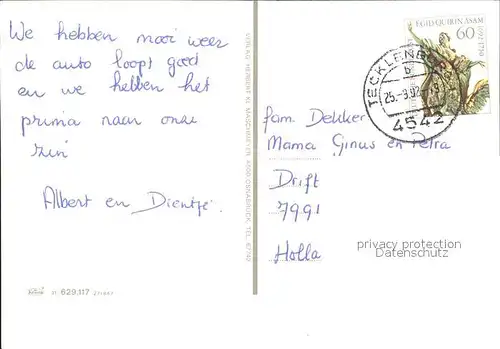 We hebben mooi weer
de auto loopt goed
en we hebben het
prima naar onze
zin
Albert en Dientje.
629.117
EGID QUIRIN ASAM
60
TECKLENBURG
b
25.-9.92.-
4542
fam Dekker
Mama Ginus en Petra
Drift
7991
Holla
privacy protection
Datenschutz